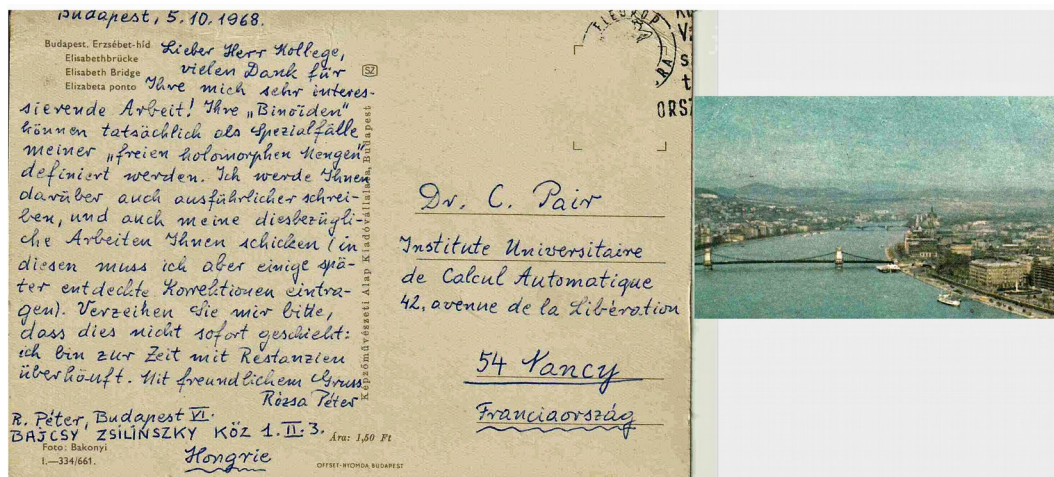 Budapest, 5.10.1968.
Budapest. Erzsébet-híd
Elisabethbrücke
Elisabeth Bridge
Elizabeta ponto
SZ
Lieber Herr Kollege,
vielen Dank für
Ihre mich sehr interes-
sierende Arbeit! Ihre „Binoïden"
können tatsächlich als Spezialfälle
meiner „freien holomorphen Mengen"
definiert werden. Ich werde Ihnen
darüber auch ausführlicher schrei-
ben, und auch meine diesbezügli-
che Arbeiten Ihnen schicken (in
diesen muss ich aber einige spä-
ter entdeckte Korrektionen eintra-
gen). Verzeihen Sie mir bitte,
dass dies nicht sofort geschieht:
ich bin zur Zeit mit Restanzien
überhäuft. Mit freundlichem Gruss
Rózsa Péter
R. Péter, Budapest VI.
BAJCSY ZSILINSZKY KÖZ 1. II. 3.
Hongrie
Foto: Bakonyi
I.—334/661.
Ára: 1,50 Ft
OFFSET-NYOMDA BUDAPEST
Képzőművészeti Alap Kiadóvállalata, Budapest
ORSZ
Dr. C. Pair
Institute Universitaire
de Calcul Automatique
42, avenue de la Libération
54 Nancy
Franciaország